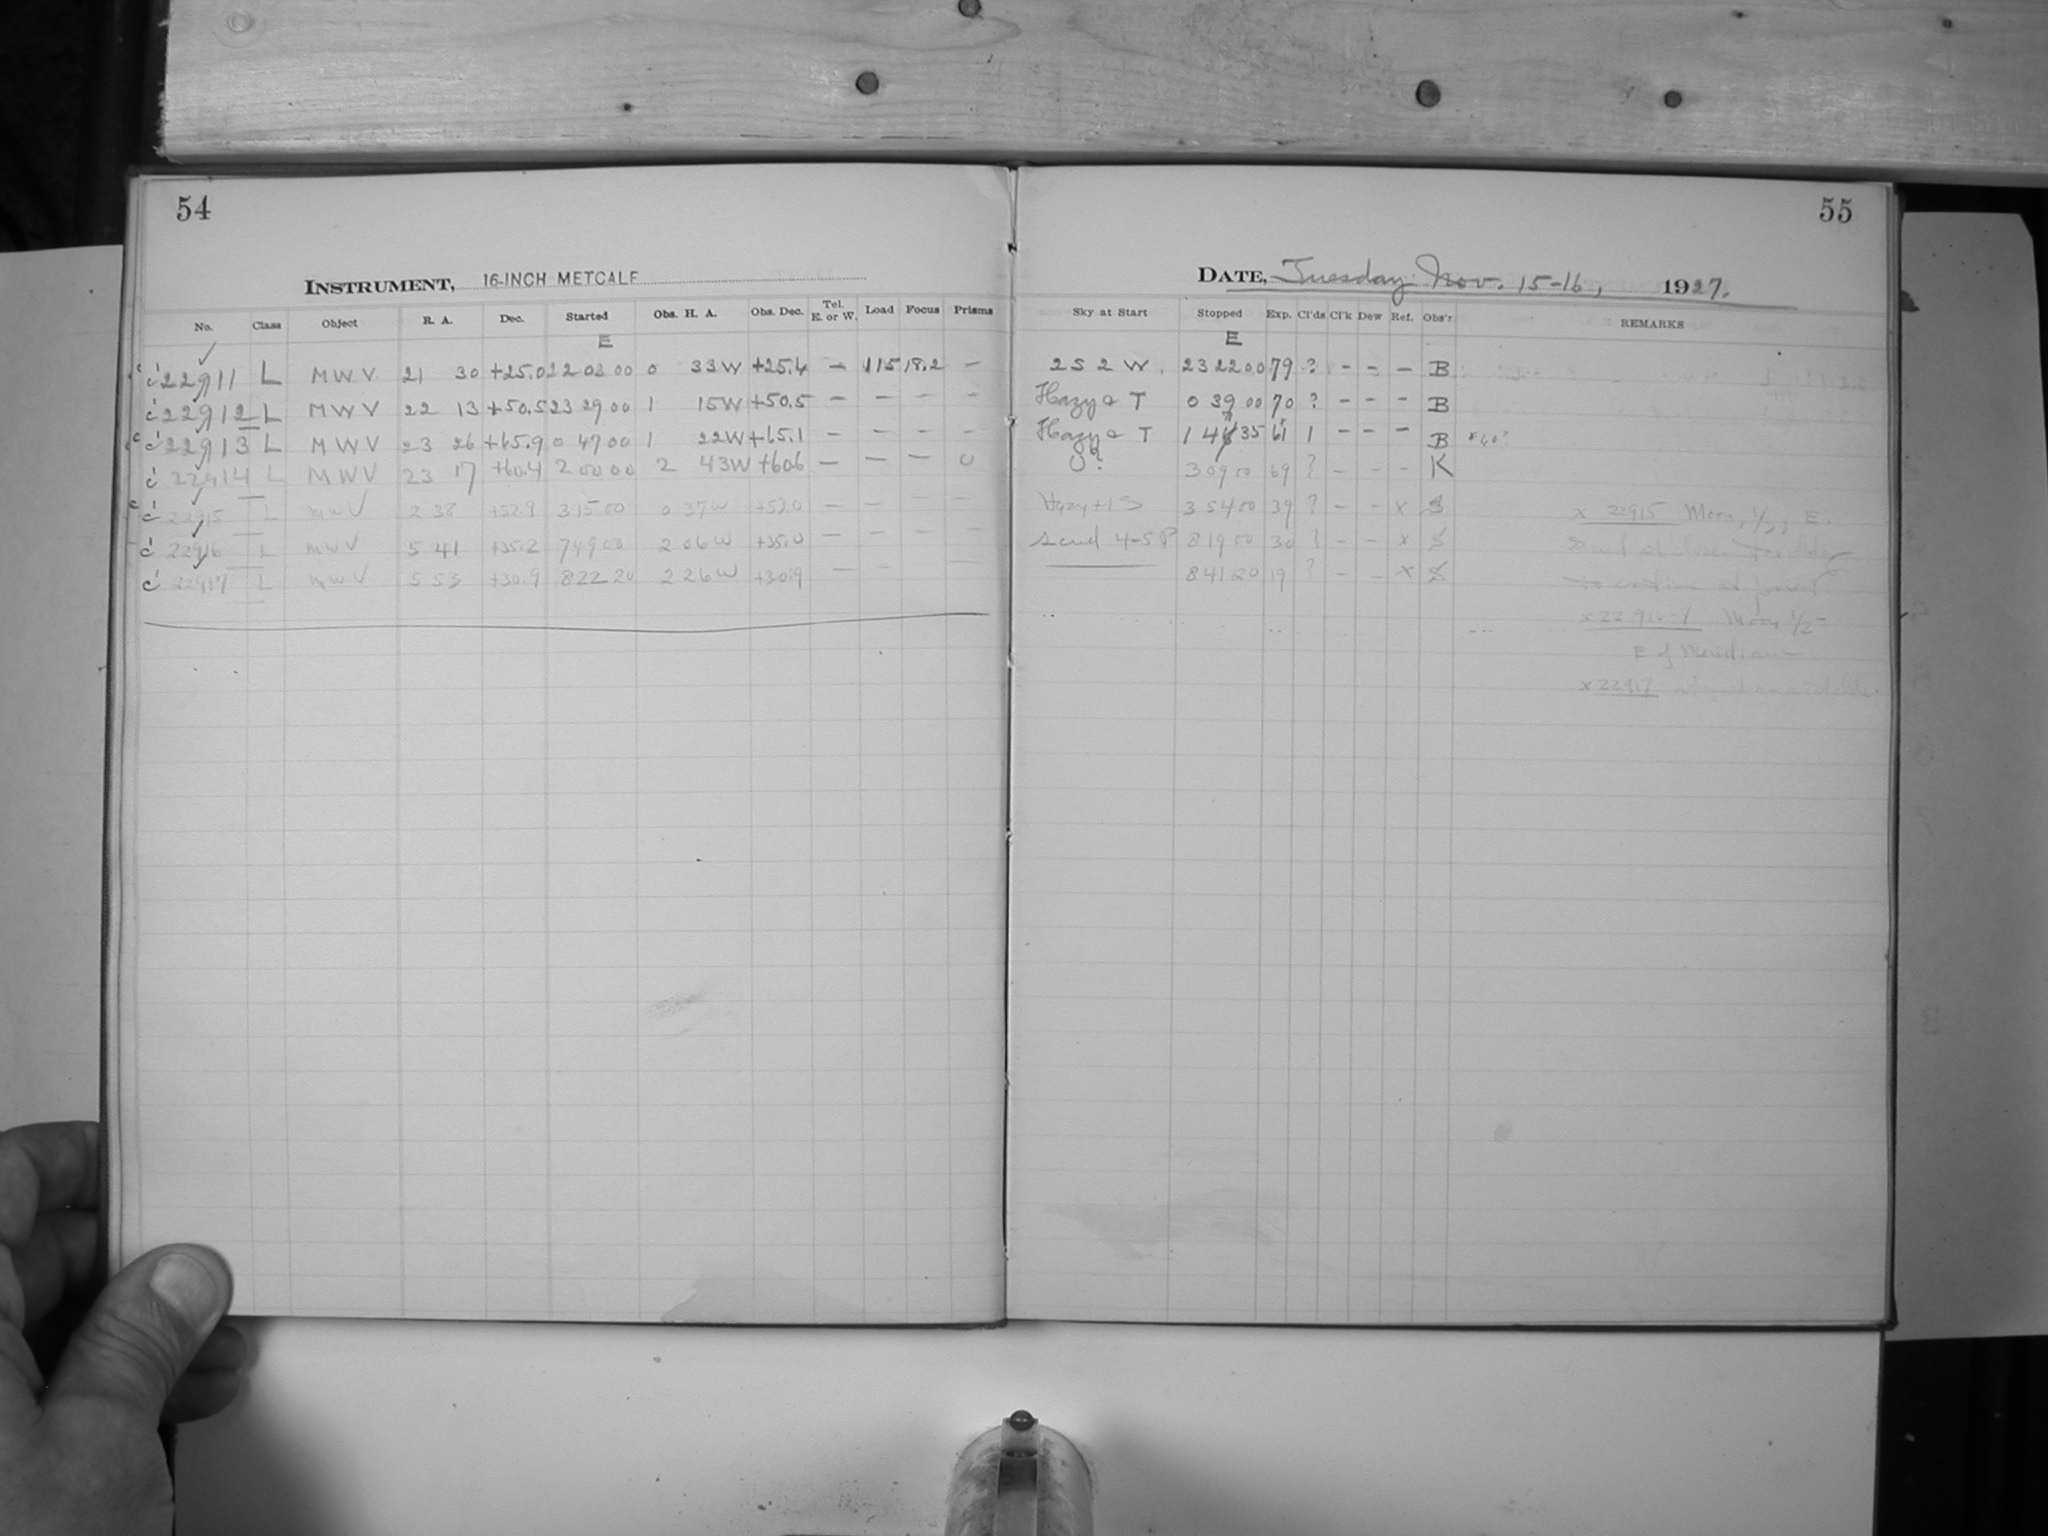 54
INSTRUMENT, 16-INCH METCALF
No. Class Object R. A. Dec. Started Obs. H. A. Obs. Dec. Tel. E. or W. Load Focus Prisms
E
c' 22911 L M W V 21 30 +25.0 22 03 00 0 33W +25.4 — 115 18.2 —
c' 22912 L M W V 22 13 +50.5 23 29 00 1 15W +50.5 — — — —
c' 22913 L M W V 23 26 +65.9 0 47 00 1 22W +65.1 — — — —
c' 22914 L M W V 23 17 +60.4 2 00 00 2 43W +60.6 — — —
c' 22915 L M W V 2 38 +52.9 3 15 00 0 37W +53.0 — — — —
c' 22916 L M W V 5 41 +35.2 7 49 00 2 06W +35.0 — — — —
c' 22917 L M W V 5 53 +30.9 8 22 20 2 26W +30.9 — — — —
55
DATE, Tuesday Nov. 15-16, 1927.
Sky at Start Stopped Exp. Cl'ds Cl'k Dew Ref. Obs'r REMARKS
E
2 S 2 W. 23 22 00 79 ? - - - B
Hazy & T 0 39 00 70 ? - - - B
Hazy & T 1 35 61 1 - - - B
? 3 09 00 69 ? - - - K
Hazy + 3 54 00 39 ? - - x S x 22915 Moon, 1/2, E.
Scud 4-5 8 19 00 30 ? - - x S
8 41 20 19 ? - - x S
x 22916-7 Moon 1/2
E of Meridian
x 22917